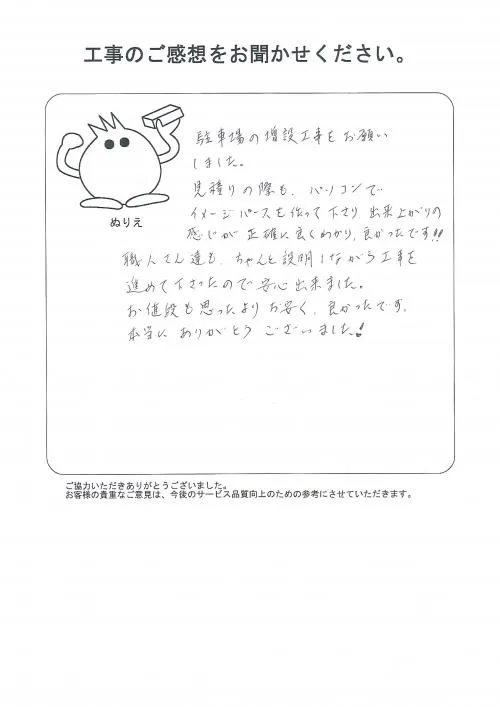 工事のご感想をお聞かせください。
駐車場の増設工事をお願い
しました。
見積りの際も、パソコンで
イメージパースを作って下さり、出来上がりの
感じが正確に良くわかり、良かったです!!
ぬりえ
職人さん達も、ちゃんと説明しながら工事を
進めて下さったので安心出来ました。
お値段も思ったよりお安く、良かったです。
本当にありがとうございました!
ご協力いただきありがとうございました。
お客様の貴重なご意見は、今後のサービス品質向上のための参考にさせていただきます。